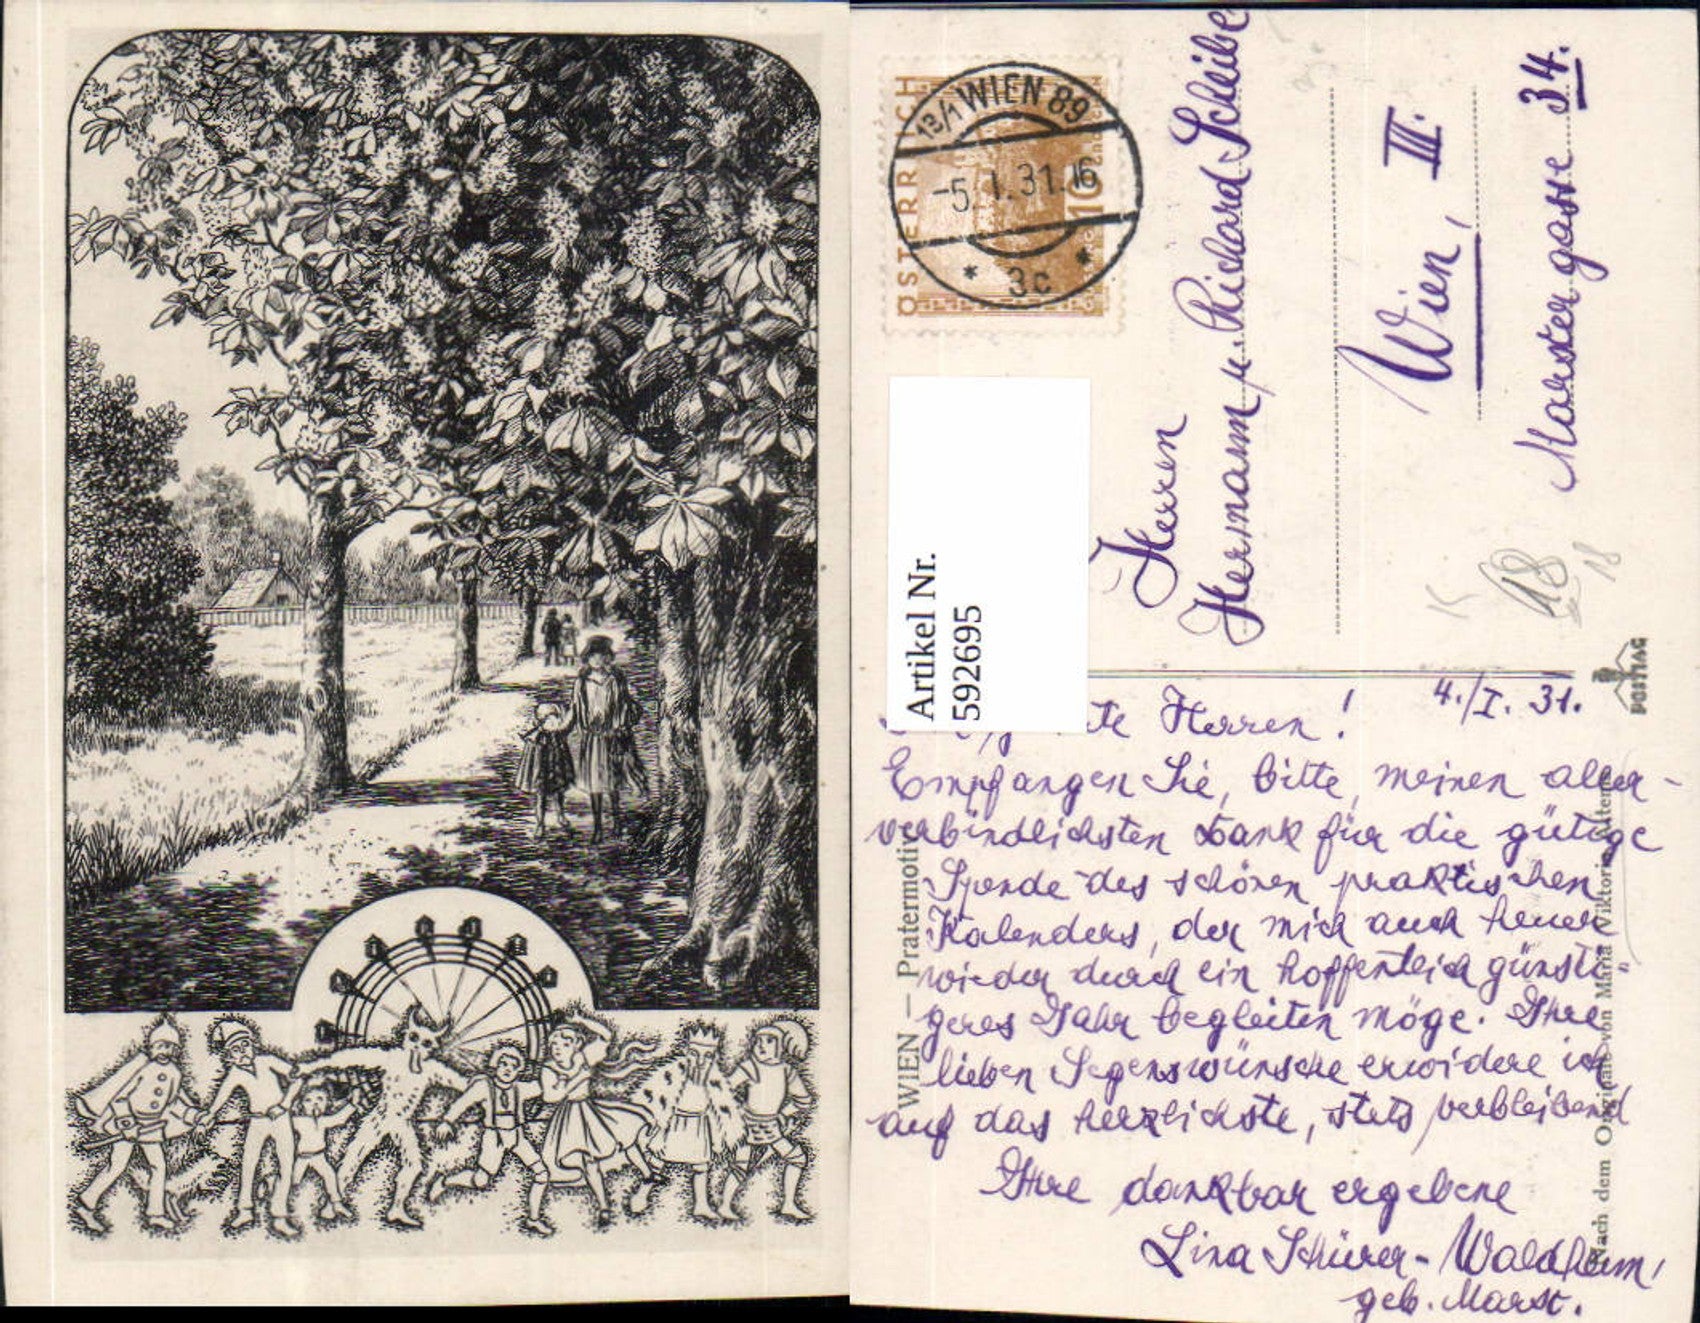 ÖSTERREICH
10
13/1 WIEN 89
-5.I.31.16
* 3c *
Herren
Hermann u. Richard Scheibe
Wien, III.
Marxergasse 34.
Artikel Nr.
592695
18
18
POSTIAG
4./I. 31.
Herren!
Empfangen Sie, bitte, meinen aller-
verbindlichsten Dank für die gütige
Spende des schönen praktischen
Kalenders, der mich auch heuer
wieder durch ein hoffentlich günsti-
geres Jahr begleiten möge. Ihre
lieben Segenswünsche erwidere ich
auf das herzlichste, stets verbleibend
Ihre dankbar ergebene
Lina Schürer-Waldheim,
geb. Marst.
WIEN — Pratermotiv
Nach dem Original von Maria Viktoria